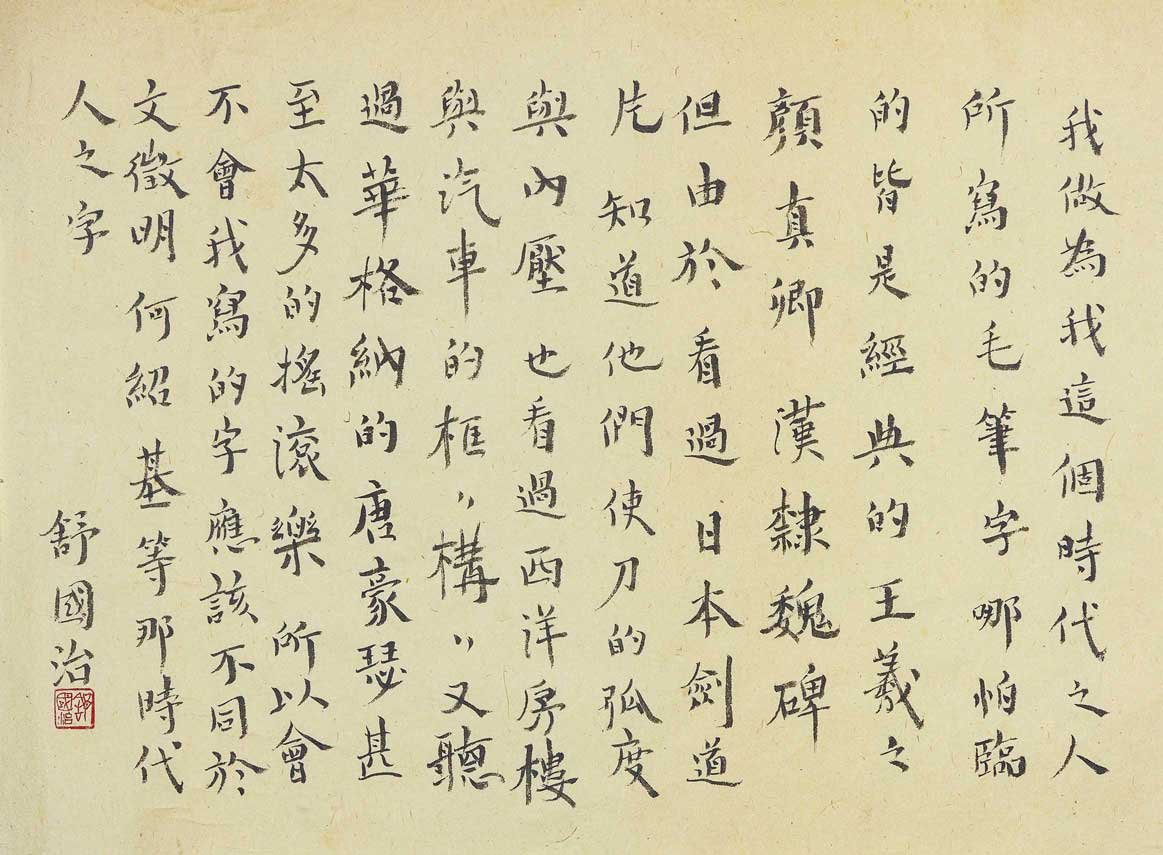 我做為我這個時代之人
所寫的毛筆字哪怕臨
的皆是經典的王羲之
顏真卿 漢隸魏碑
但由於看過日本劍道
片 知道他們使刀的弧度
與內壓也看過西洋房樓
與汽車的框〃構〃又聽
過華格納的唐豪瑟甚
至太多的搖滾樂 所以會
不會我寫的字應該不同於
文徵明 何紹基等那時代
人之字
舒國治
舒國治